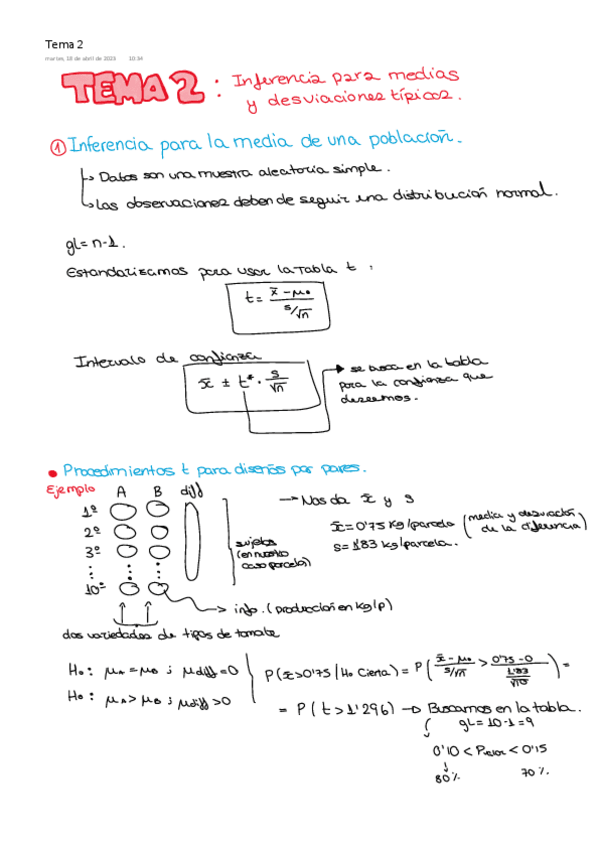 Tema 2
martes, 18 de abril de 2023 10:34
TEMA 2 : Inferencia para medias
y desviaciones típicas.
① Inferencia para la media de una población.
↳ Datos son una muestra aleatoria simple.
↳ Las observaciones deben de seguir una distribución normal.
gl = n-1.
Estandarizamos para usar la Tabla t :
t = x̄ - μ₀ / s/√n
Intervalo de confianza
x̄ ± t* · s/√n
→ se busca en la tabla
para la confianza que
deseemos.
• Procedimientos t para diseños por pares.
Ejemplo A B diff
1º
2º
3º
⋮
10º
sujetos
(en nuestro
caso parcela)
→ Nos da x̄ y s
x̄ = 0'75 Kg/parcela
s = 1'83 kg/parcela.
(media y desviación
de la diferencia)
→ info. (producción en kg/p)
dos variedades de tipos de tomate
H₀: μA = μB ; μdiff = 0
H₀: μA > μB ; μdiff > 0
P(x̄ > 0'75 | H₀ Cierta) = P( x̄ - μ₀ / s/√n > 0'75 - 0 / 1'83/√10 ) =
= P(t > 1'296) → Buscamos en la tabla.
gL = 10-1 = 9
0'10 < Pvalor < 0'15
80% 70%